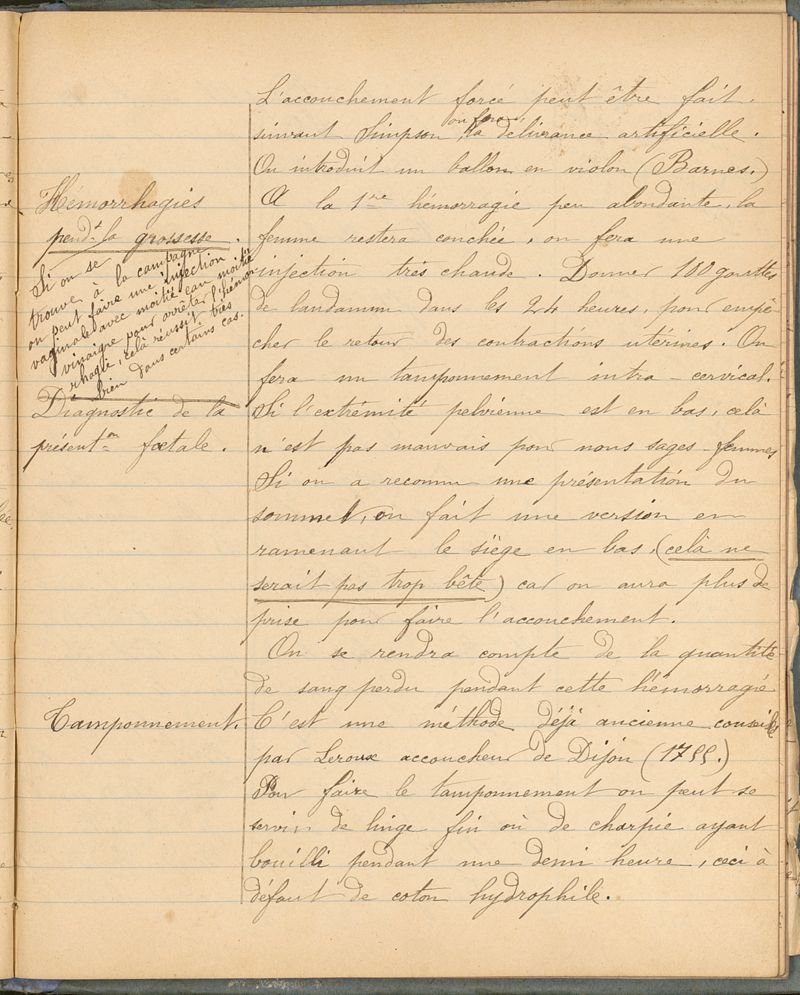 L'accouchement forcé peut être fait.
on fera,
suivant Simpson, la délivrance artificielle.
On introduit un ballon en violon (Barnes.)
Hémorrhagies
pendt la grossesse
A la 1re hémorragie peu abondante, la
femme restera couchée, on fera une
injection très chaude. Donner 100 gouttes
de laudanum dans les 24 heures, pour empê-
cher le retour des contractions utérines. On
fera un tamponnement intra-cervical.
Si on se
trouve à la campagne
on peut faire une injection
vaginale avec moitié eau moitié
vinaigre pour arrêter l'hémor-
rhagie, celà réussit très
bien dans certains cas.
Diagnostic de la
présenton fœtale.
Si l'extrémité pelvienne est en bas, celà
n'est pas mauvais pour nous sages-femmes
Si on a reconnu une présentation du
sommet, on fait une version en
ramenant le siège en bas, (celà ne
serait pas trop bête) car on aura plus de
prise pour faire l'accouchement.
On se rendra compte de la quantité
de sang perdu pendant cette hémorragie
Tamponnement.
C'est une méthode déjà ancienne
par Leroux accoucheur de Dijon (1755.)
Pour faire le tamponnement on peut se
servir de linge fin où de charpie ayant
bouilli pendant une demi heure, ceci à
défaut de coton hydrophile.